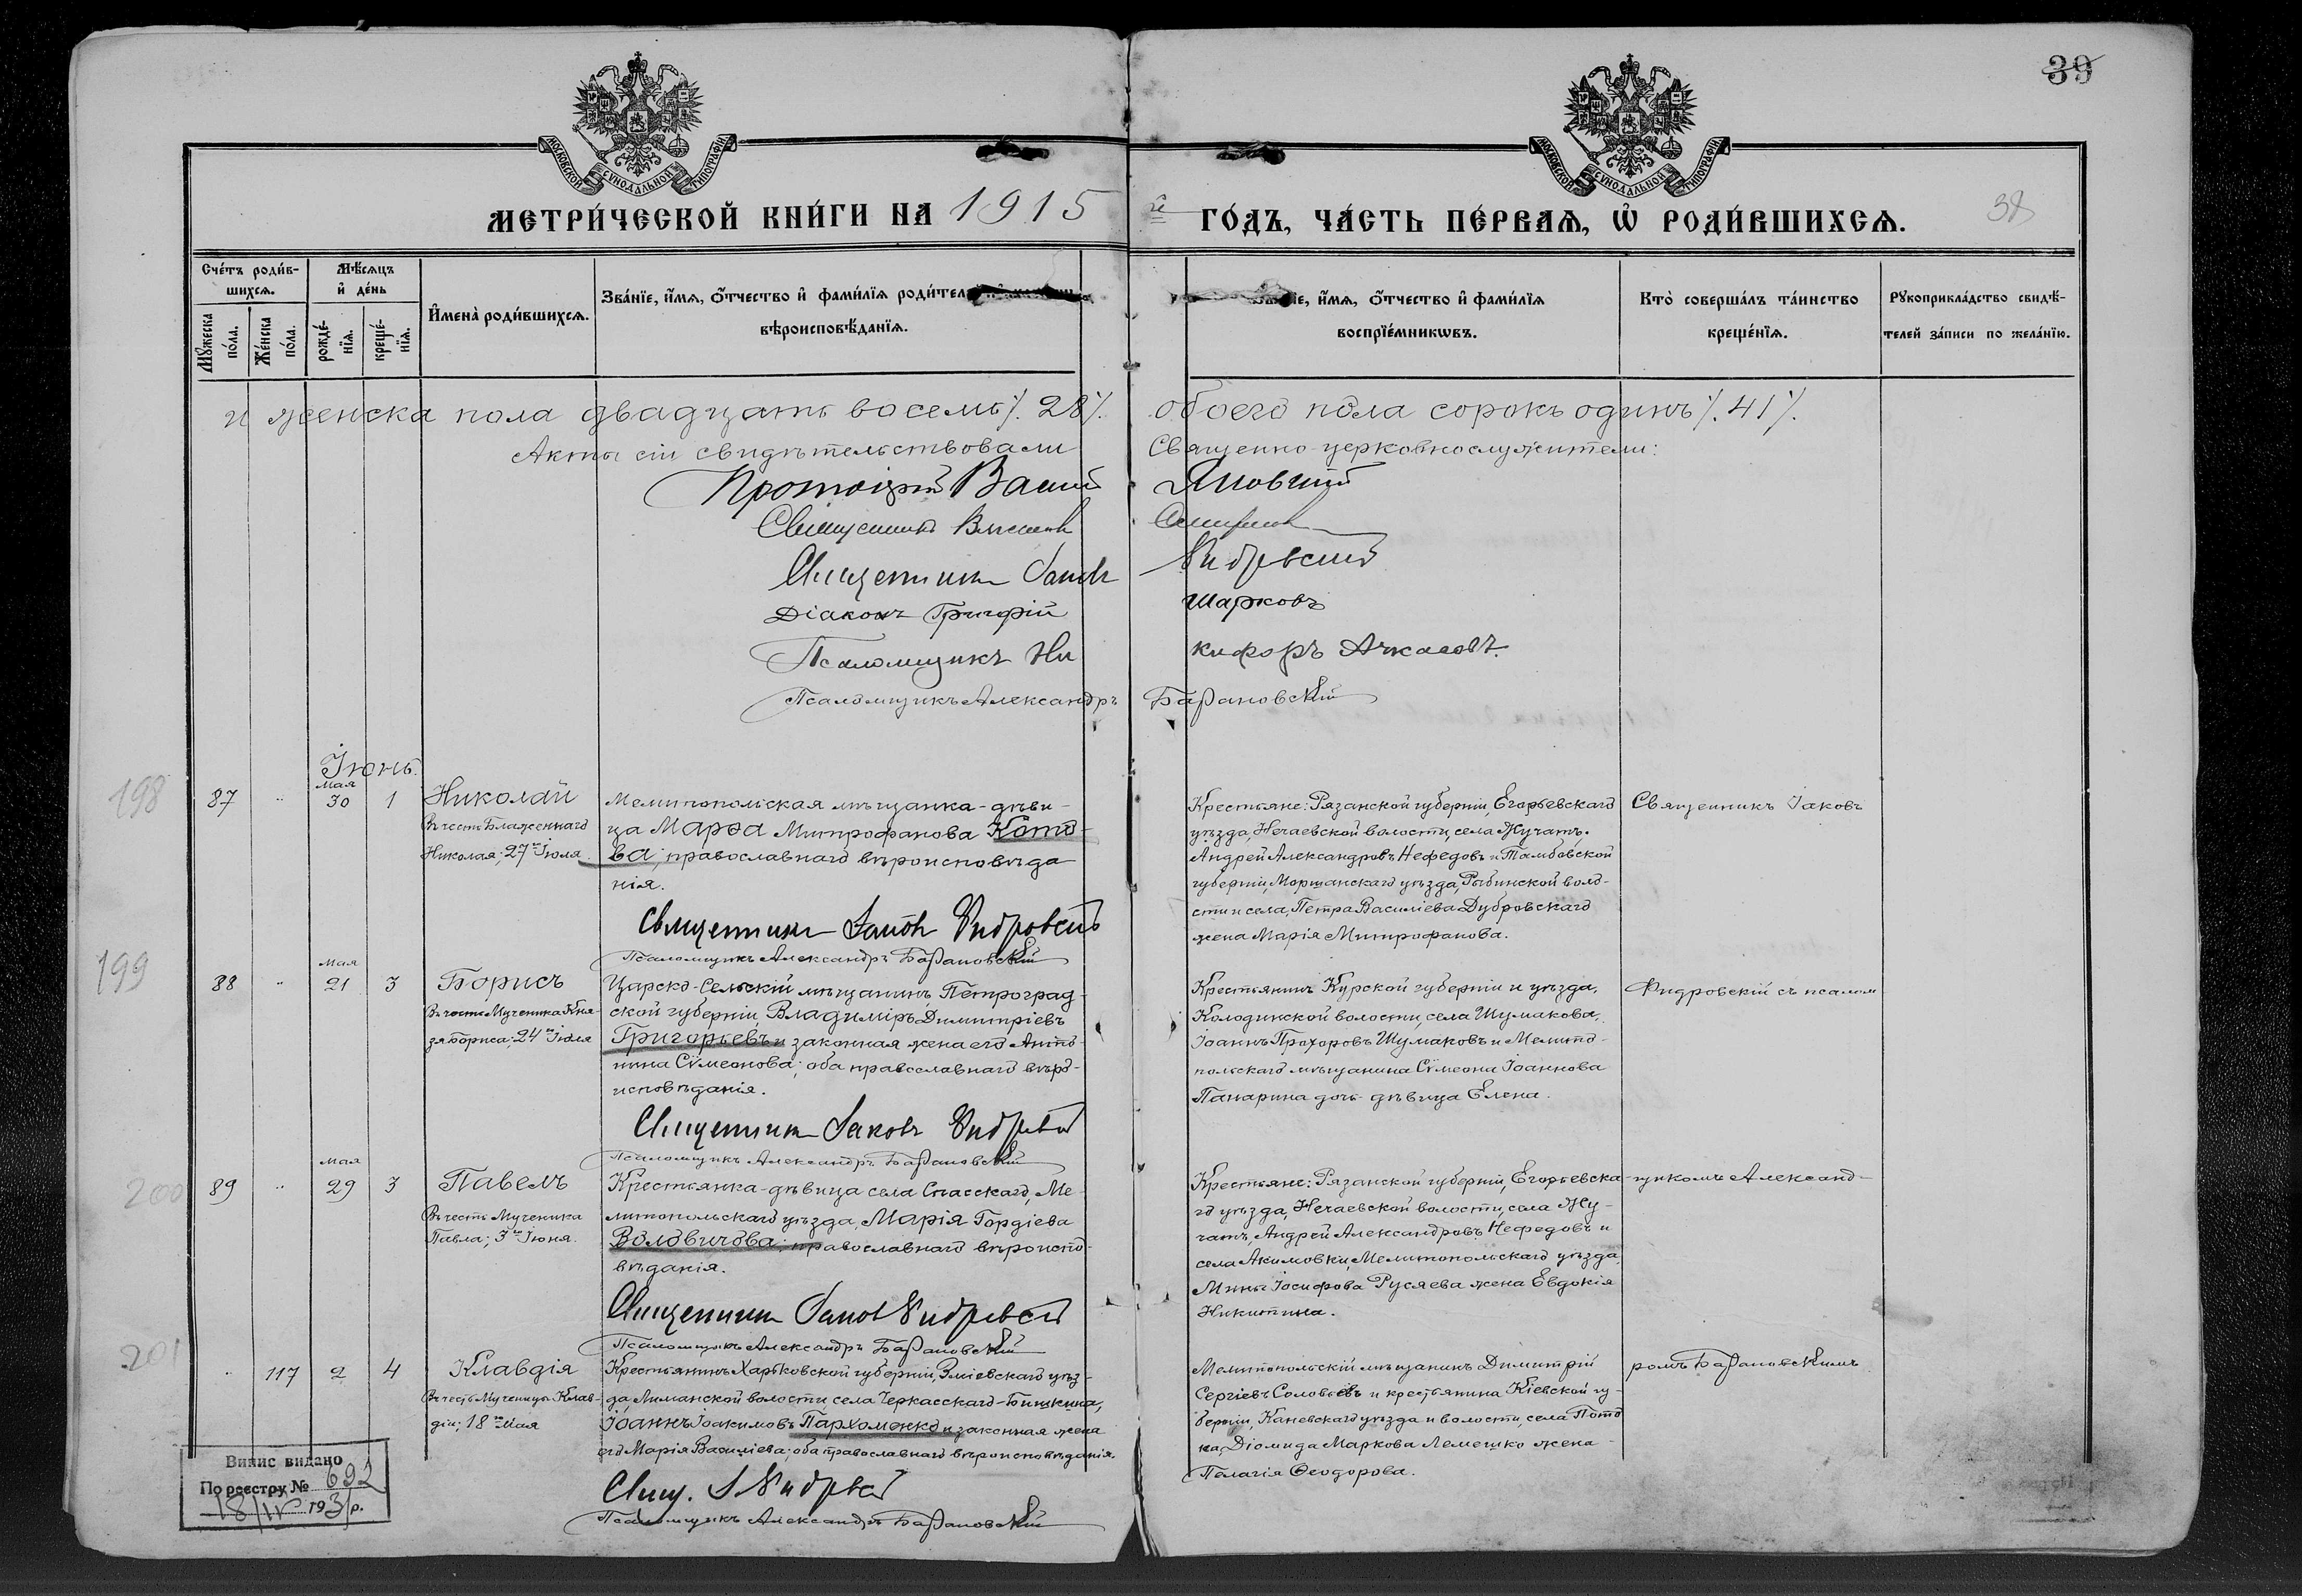 39
МОСКОВСКОЙ СѴНОДАЛЬНОЙ ТИПОГРАФІИ
МОСКОВСКОЙ СѴНОДАЛЬНОЙ ТИПОГРАФІИ
МЕТРИ́ЧЕСКОЙ КНИ́ГИ НА 1915 й ГО́ДЪ, ЧА́СТЬ ПЕ́РВАЯ, Ѡ҆ РОДИ́ВШИХСЯ.
38
Сче́тъ роди́в-
шихся.
Му́жеска по́ла.
Же́нска по́ла.
Мѣ́сяцъ
и҆ де́нь
рожде́-
нїя.
креще́-
нїя.
И҆мена̀ роди́вшихся.
Зва́нїе, и҆́мя, ѻ҆́тчество и҆ фами́лїя роди́тел
вѣроисповѣ́данїя.
їе, и҆́мя, ѻ҆́тчество и҆ фами́лїя
воспрїе́мникѡвъ.
Кто̀ соверша́лъ та́инство
креще́нїя.
Рꙋкоприкла́дство свидѣ́-
телей за́писи по жела́нїю.
и женска пола двадцать восемь /. 28 /. обоего пола сорокъ одинъ /. 41 /.
Акты сіи свидѣтельствовали Священно-церковнослужители:
Протоіерей Васил Яновскій
Священникъ
Священникъ Іаковъ Фидровскій
Діаконъ Григорій Шарковъ
Псаломщикъ Никифоръ Ачкасовъ.
Псаломщикъ Александръ Барановскій
Іюнь.
198
87 " мая 30 1
Николай
Въ честь Блаженнаго
Николая; 27го Іюля.
Мелитопольская мѣщанка-дѣви-
ца Марѳа Митрофанова Кото-
ва; православнаго вѣроисповѣда
нія.
Священникъ Іаковъ Фидровскій
Псаломщикъ Александръ Барановскій
Крестьяне: Рязанской губерніи, Егорьевскаго
уѣзда, Нечаевской волости, села Жучатъ.
Андрей Александровъ Нефедовъ и Тамбовской
губерніи, Моршанскаго уѣзда, Рыбинской воло-
сти и села, Петра Василіева Дубровскаго
жена Марія Митрофанова.
Священникъ Іаковъ
199
88 " мая 21 3
Борисъ
Въ честь Мученика Кня-
зя Бориса; 24го Іюля
Царско-Сельскій мѣщанинъ, Петроград-
ской губерніи, Владиміръ Димитріевъ
Григорьевъ и законная жена его Анто-
нина Сѵмеонова; оба православнаго вѣро-
исповѣданія.
Священникъ Іаковъ Фидровскій
Псаломщикъ Александръ Барановскій
Крестьянинъ Курской губерніи и уѣзда,
Колодинской волости, села Шумакова,
Іоаннъ Прохоровъ Шумаковъ и Мелито-
польскаго мѣщанина Сѵмеона Іоаннова
Панарина дочь-дѣвица Елена.
Фидровскій съ псалом
200
89 " мая 29 3
Павелъ
Въ честь Мученика
Павла; 3го Іюня.
Крестьянка-дѣвица села Спасскаго, Ме-
литопольскаго уѣзда, Марія Гордіева
Воловичова; православнаго вѣроиспо-
вѣданія.
Священникъ Іаковъ Фидровскій
Псаломщикъ Александръ Барановскій
Крестьяне: Рязанской губерніи, Егорьевска-
го уѣзда, Нечаевской волости, села Жу-
чатъ, Андрей Александровъ Нефедовъ и
села Акимовки, Мелитопольскаго уѣзда,
Мины Іосифова Русяева жена Евдокія
Никитина.
щикомъ Александ-
201
" 117 2 4
Клавдія
Въ честь Мученицы Клав-
діи; 18го Мая
Крестьянинъ Харьковской губерніи, Зміевскаго уѣз-
да, Лиманской волости села Черкасскаго-Бишкина,
Іоаннъ Іоакимовъ Пархоменко и законная жена
его Марія Василіева; оба православнаго вѣроисповѣданія.
Свящ. І Фидровскій
Псаломщикъ Александръ Барановскій
Мелитопольскій мѣщанинъ Димитрій
Сергіевъ Соловьевъ и крестьянина Кіевской гу-
берніи, Каневскаго уѣзда и волости, села Пото
ка, Діомида Маркова Лемешко жена-
Пелагія Ѳеодорова.
ромъ Барановскимъ.
Випис видано
По реєстру № 692
18/IV 1931 р.